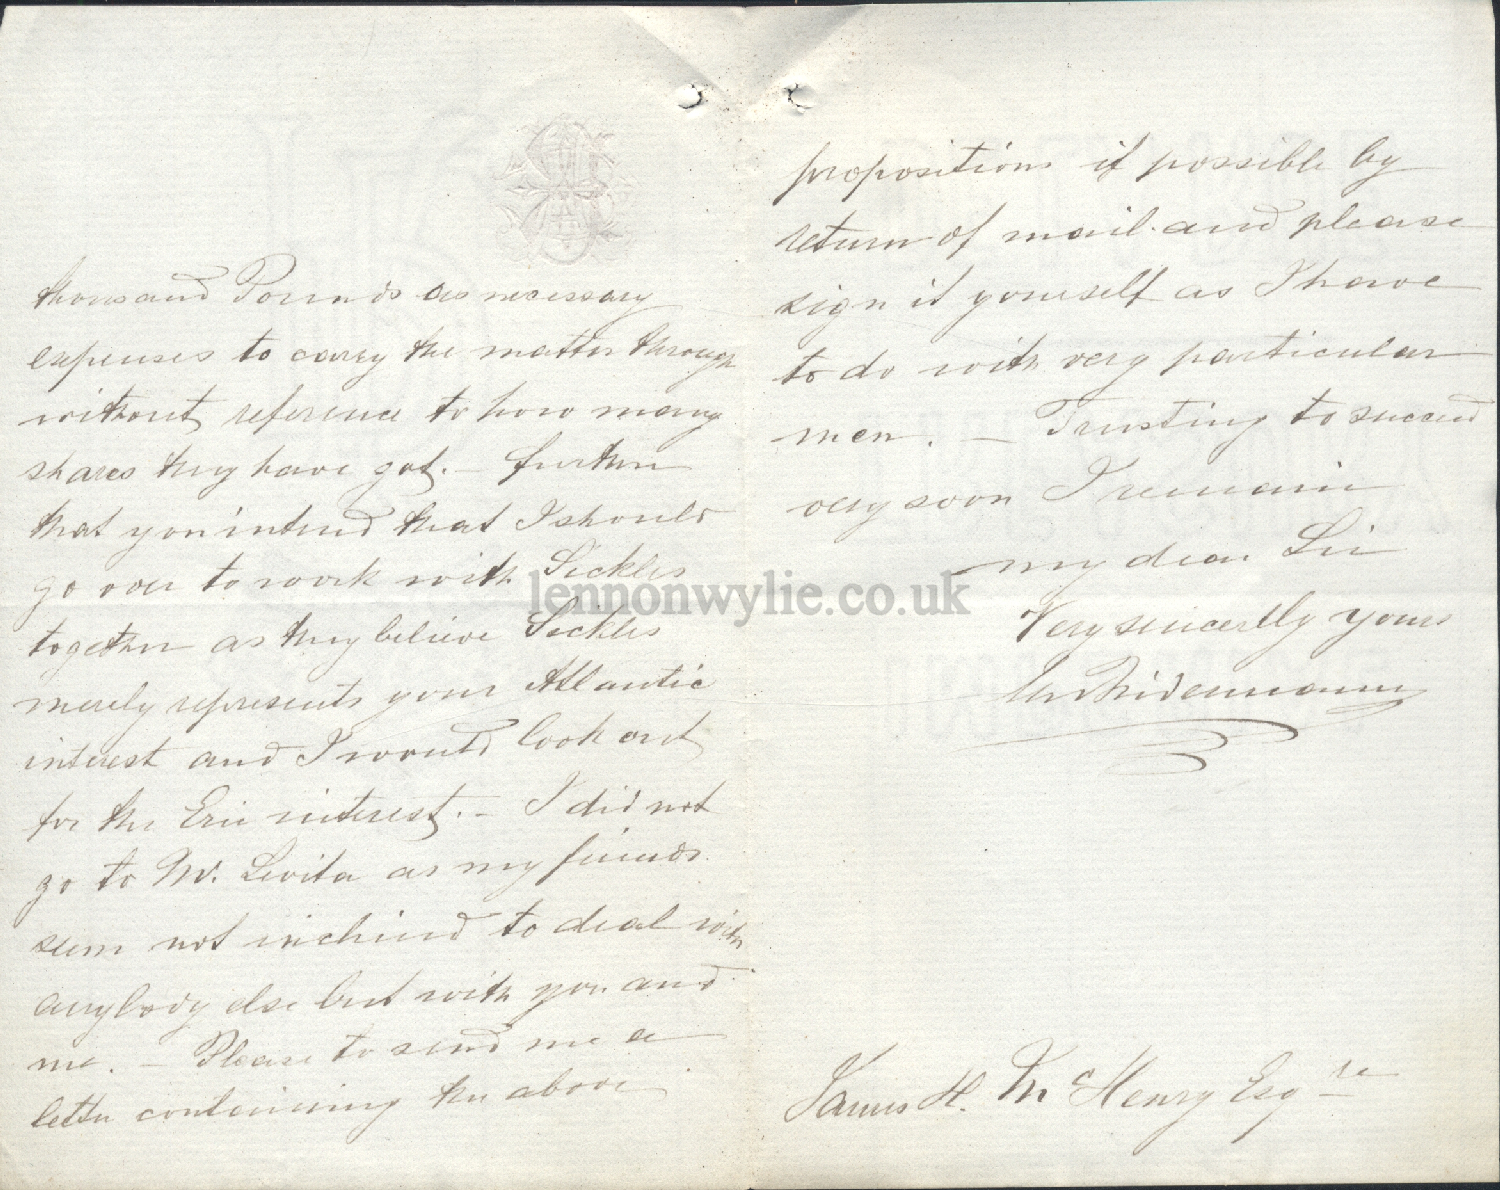 thousand Pounds as necessary
expenses to carry the matter through
without reference to how many
shares they have got. — further
that you intend that I should
go over to work with Sickles
together as they believe Sickles
merely represents your Atlantic
interest and I would look out
for the Erie interest. — I did not
go to Mr. Levita as my friends
seem not inclined to deal with
anybody else but with you and
me. — Please to send me a
letter containing the above
propositions if possible by
return of mail and please
sign it yourself as I have
to do with very particular
men. — Trusting to succeed
very soon I remain
my dear Sir
Very sincerelly yours
James H. McHenry Esqre
lennonwylie.co.uk